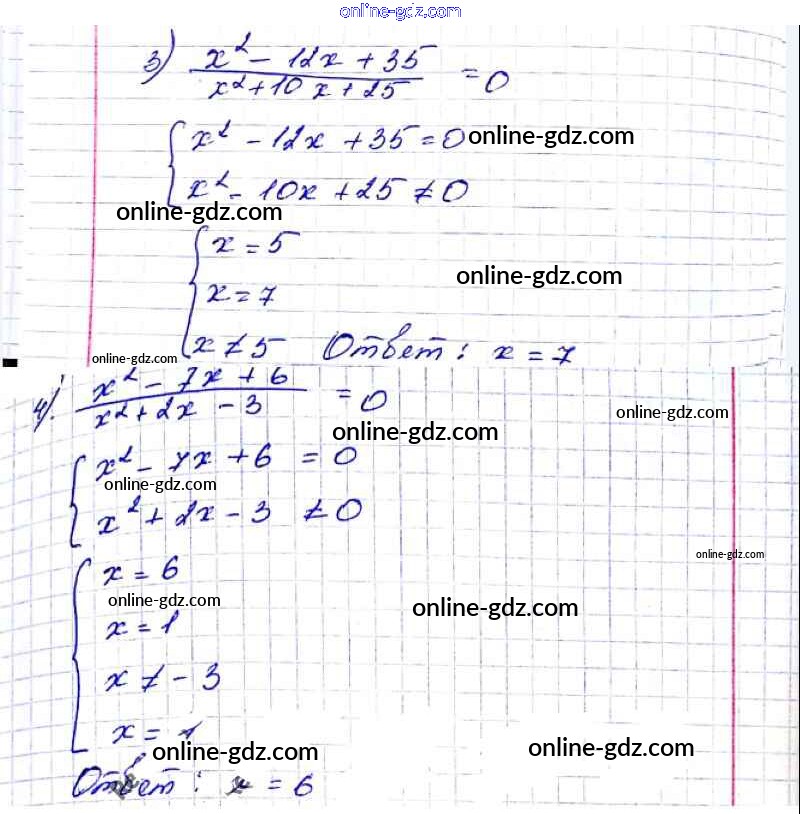 online-gdz.com
3) x² - 12x + 35 / x² + 10x + 25 = 0
x² - 12x + 35 = 0 online-gdz.com
x² - 10x + 25 ≠ 0
online-gdz.com
x = 5
online-gdz.com
x = 7
x ≠ 5 Ответ: x = 7
online-gdz.com
4) x² - 7x + 6 / x² + 2x - 3 = 0
online-gdz.com
online-gdz.com
x² - 7x + 6 = 0
online-gdz.com
x² + 2x - 3 ≠ 0
online-gdz.com
x = 6
online-gdz.com
online-gdz.com
x = 1
x ≠ -3
x = 1
online-gdz.com
online-gdz.com
Ответ: x = 6